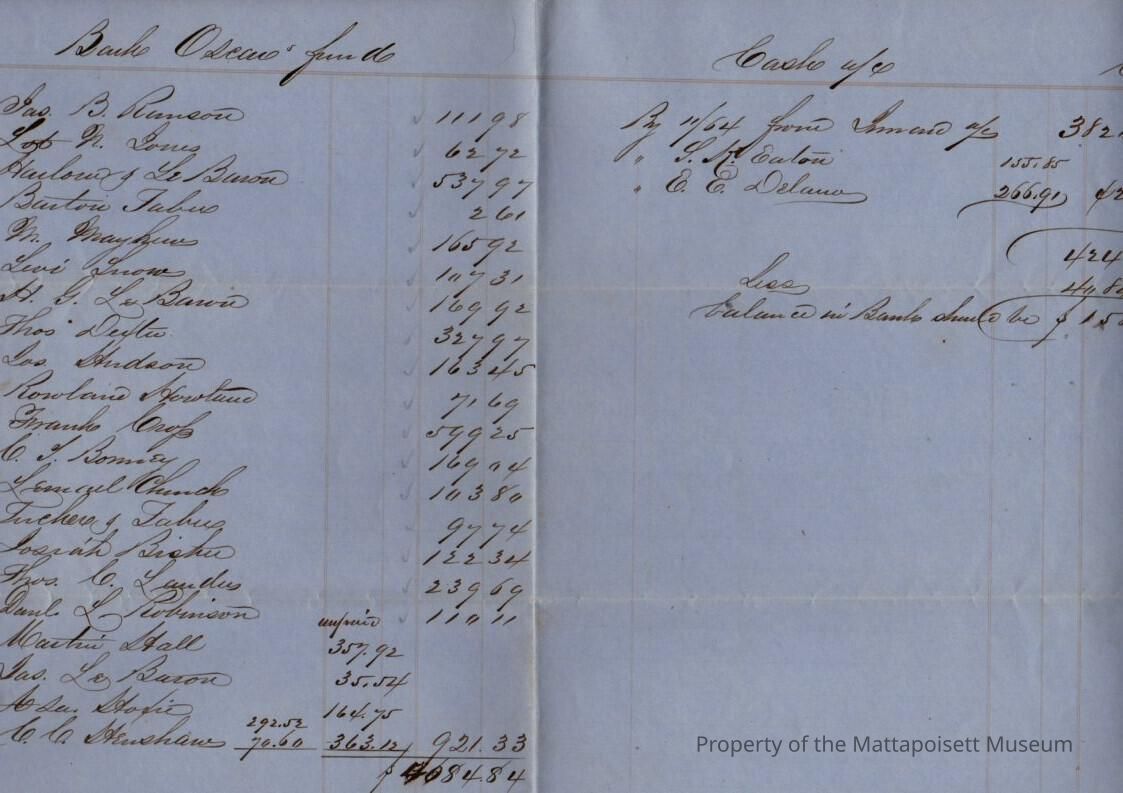 Bark Oscars' fund
Jas. B. Ranson 111 98
N. Jones 62 72
Harlow & Le Baron 537 97
Barton Tabor 2 61
M. Mayhew 165 92
Levi Snow 107 31
H. G. Le Baron 169 92
Thos Dexter 327 97
Jos. Hudson 163 45
Rowland Howland 71 69
Frank Cross 599 25
C. S. Bonney 169 04
Lemuel Church 103 80
Tucker & Tabor 97 74
Josiah 122 34
Thos. C. Landers 239 69
Danl. L. Robinson 110 11
unpaid
Martin Hall 357.92
Jas. Le Baron 35.54
Asa Hoxie 164.75
292.52
C. C. Henshaw 70.60 363.12 921.33
$ 4084.84
Cash a/c
By 11/64 from a/c 382
" S. K. Eaton 155.85
" E. E. Delano 266.91 42
424
Less 408
balance in Bank should be $ 15
Property of the Mattapoisett Museum